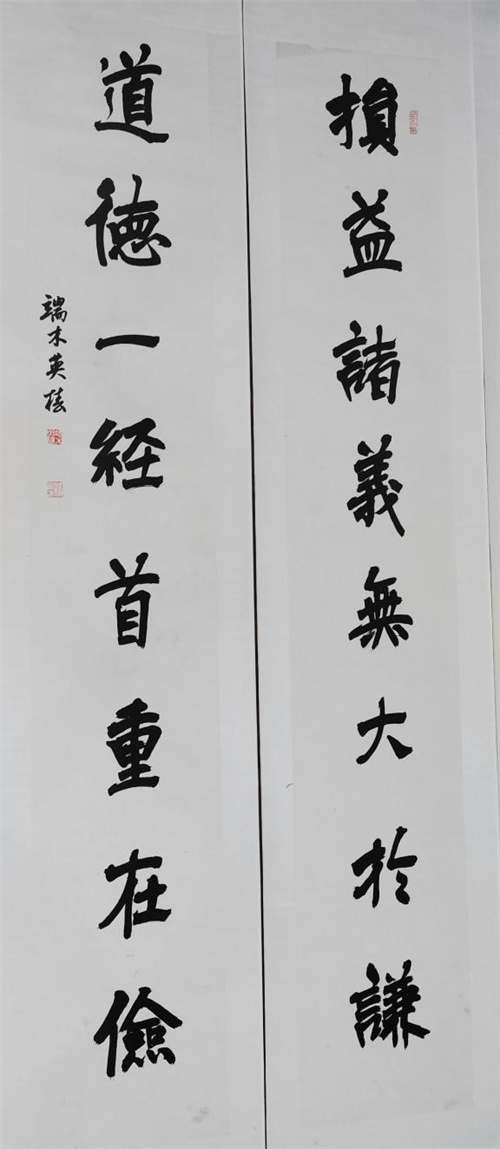 損益諸義無大於謙
道德一経首重在儉
端木英桂